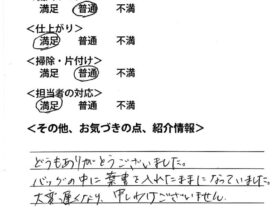 満足 普通 不満
<仕上がり>
満足 普通 不満
<掃除・片付け>
満足 普通 不満
<担当者の対応>
満足 普通 不満
<その他、お気づきの点、紹介情報>
どうもありがとうございました。
バッグの中に葉書を入れたままになっていました。
大変遅くなり、申しわけございません。